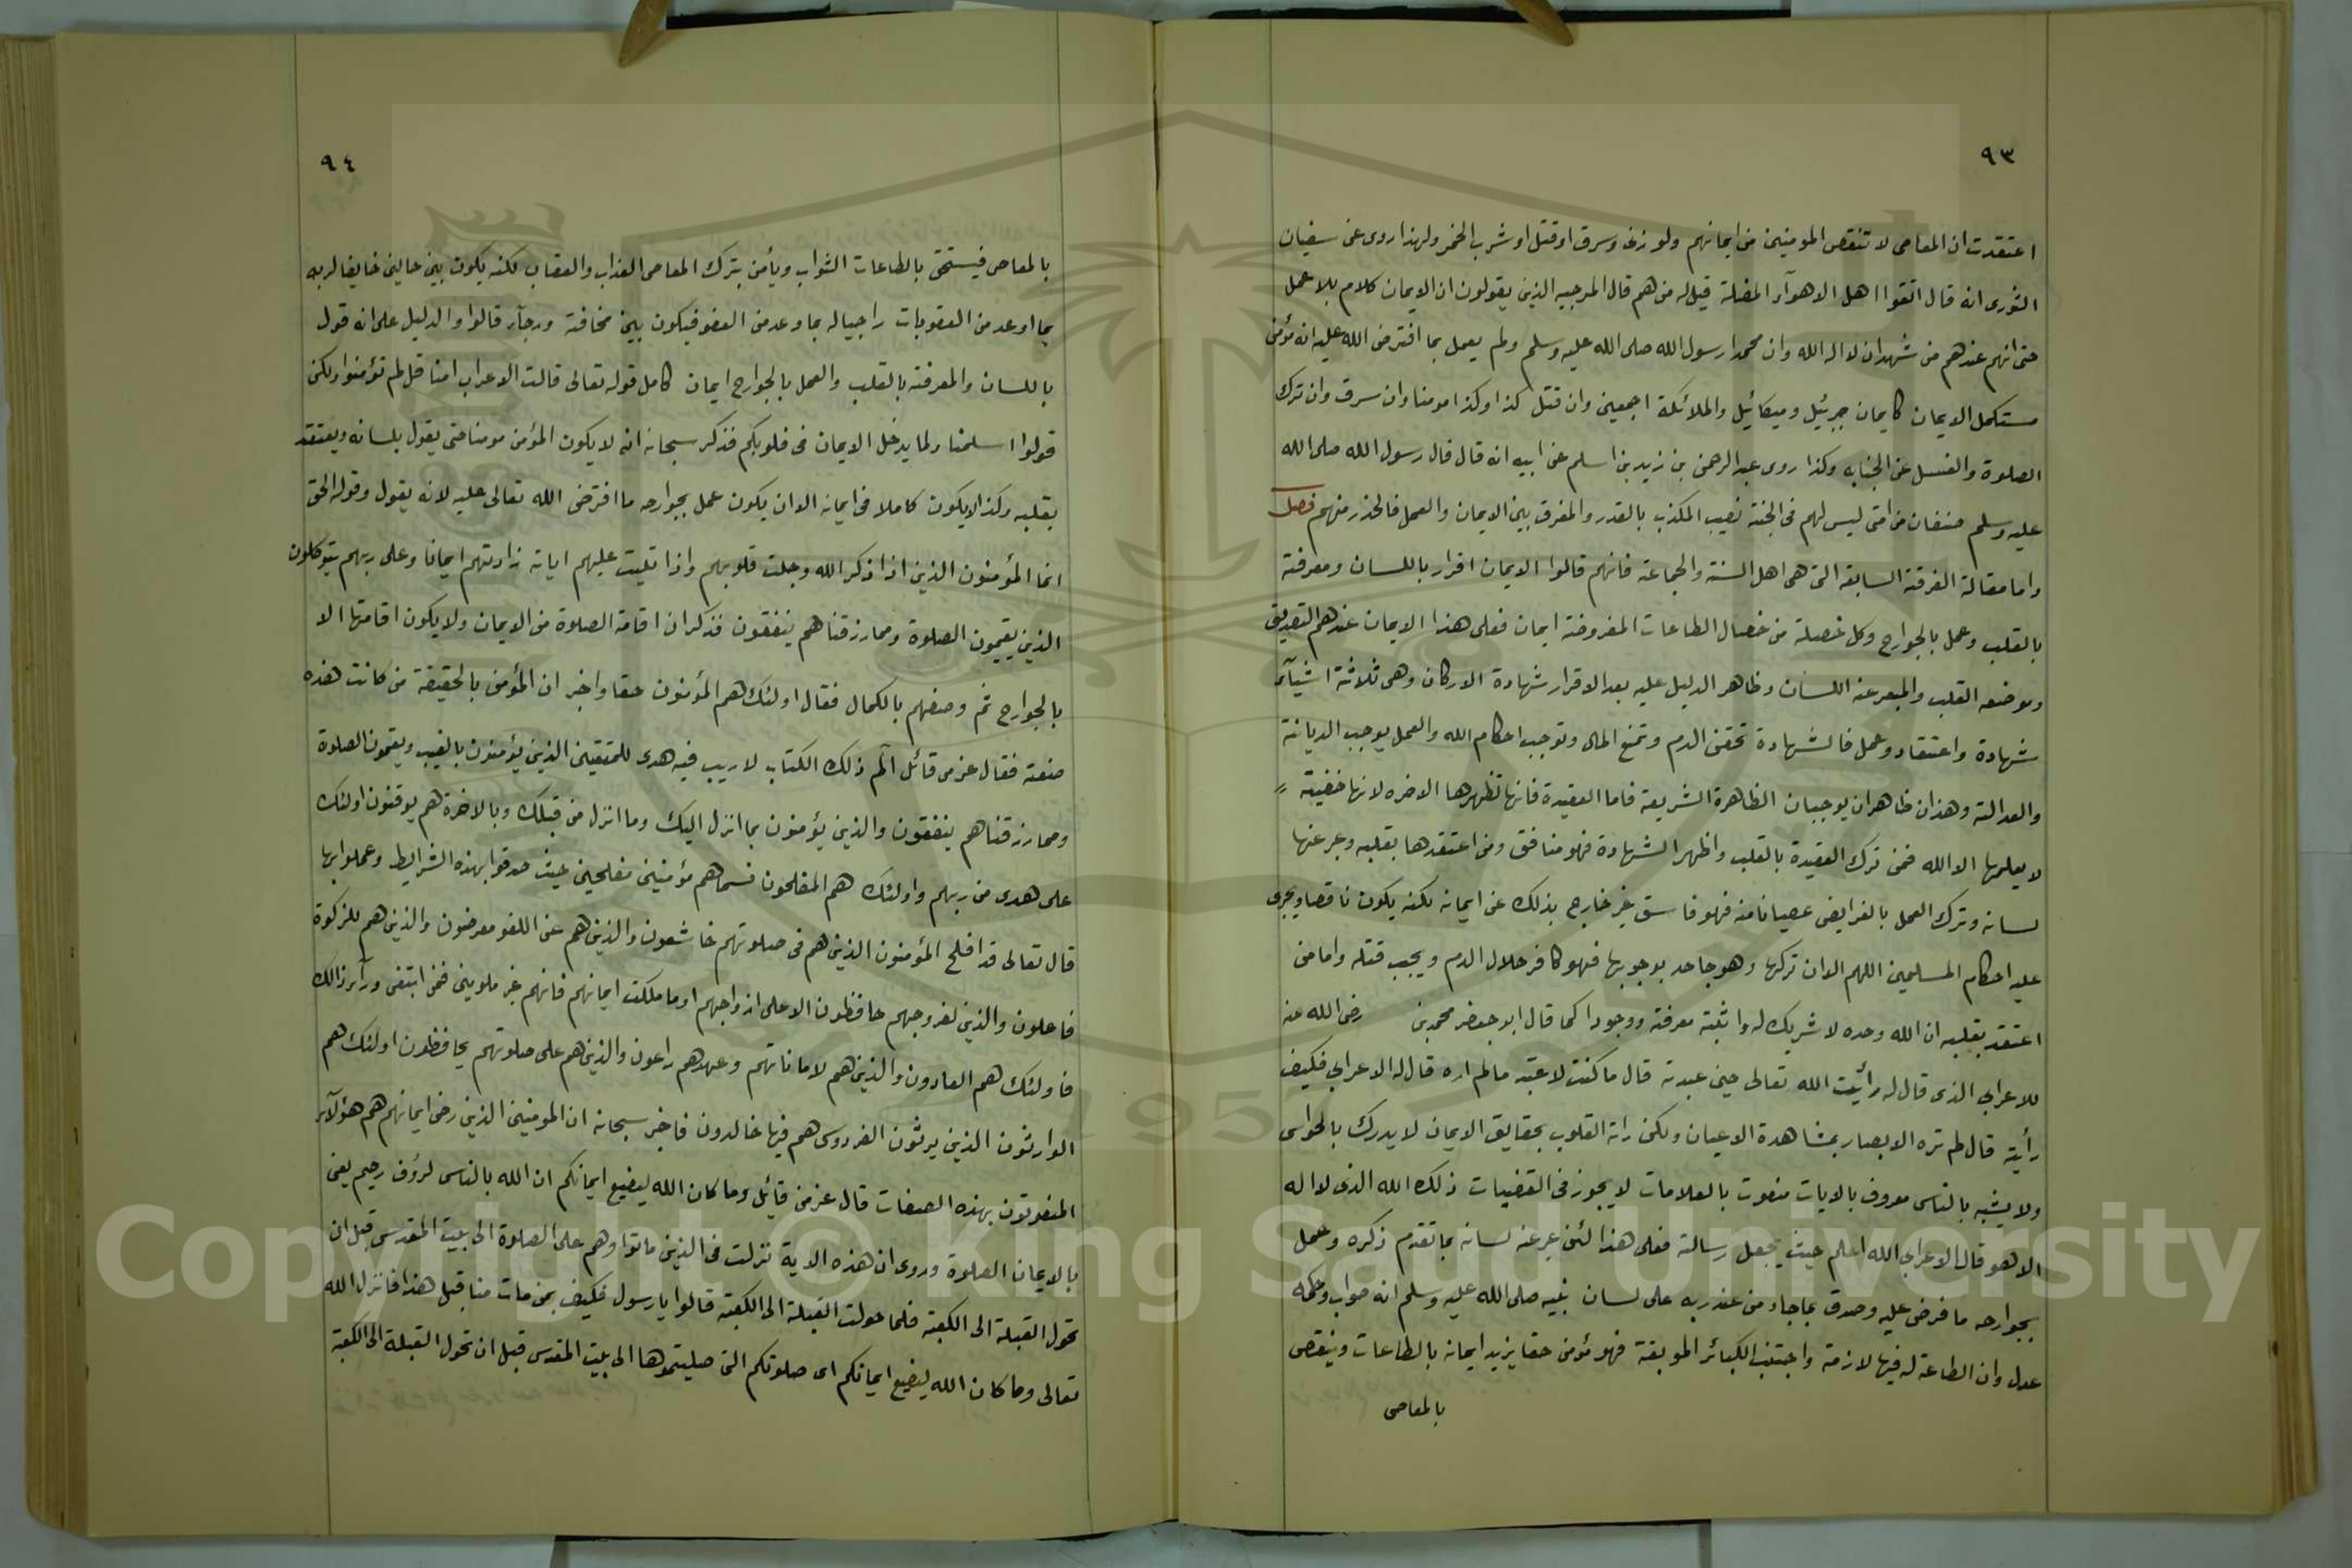 ٩٣
اعتقدت ان المعاصى لا تنقص المومنين من ايمانهم ولو زنى وسرق او قتل او شرب الخمر ولهذا روى عن سفيان
الثورى انه قال اتقوا اهل الاهوآء المضلة قيل له من هم قال المرجيه الذين يقولون ان الايمان كلام بلا عمل
حتى انهم عندهم من شهد ان لا اله الله وان محمدا رسول الله صلى الله عليه وسلم ولم يعمل بما افترض الله عليه انه مؤمن
مستكمل الايمان كايمان جبرئيل وميكائيل والملائكة اجمعين وان قتل كذا وكذا مومنا وان سرق وان ترك
الصلوة والغسل عن الجنابه وكذا روى عبد الرحمن بن زيد بن اسلم عن ابيه انه قال قال رسول الله صلى الله
عليه وسلم صنفان من امتى ليس لهم فى الجنة نصيب المكذب بالقدر والمفرق بين الايمان والعمل فالحذر منهم فصل
واما مقالة الفرقة السابعه التى هى اهل السنة والجماعة فانهم قالوا الايمان اقرار باللسان ومعرفة
بالقلب وعمل بالجوارح وكل خصلة من خصال الطاعات المفروضة ايمان فعلى هذا الايمان عندهم التصديق
وموضعه القلب والمعبر عنه اللسان وظاهر الدليل عليه بعد الاقرار شهادة الاركان وهى ثلاثة اشيآء
شهادة واعتقاد وعمل فالشهادة تحقن الدم وتمنع المال وتوجب احكام الله والعمل يوجب الديانة
والعدالة وهذان ظاهران يوجبان الظاهرة الشريعة فاما العقيدة فانها تظهرها الاخره لانها خفية
لا يعلمها الا الله فمن ترك العقيدة بالقلب واظهر الشهادة فهو منافق ومن اعتقدها بقلبه وعبر عنها
لسانه وترك العمل بالفرايض عصيانا منه فهو فاسق غير خارج بذلك عن ايمانه لكنه يكون ناقصا ويجرى
عليه احكام المسلمين اللهم الا ان تركها وهو جاحد بوجوبها فهو كافر حلال الدم ويجب قتله واما من
اعتقد بقلبه ان الله وحده لا شريك له واثبته معرفة ووجودا كما قال ابو جعفر محمد بن رضى الله عنه
للاعرابي الذى قال له رأئيت الله تعالى حين عبدته قال ما كنت لاعبد مالم اره قال له الاعرابي فكيف
رأيته قال لم تره الابصار بمشاهدة الاعيان ولكن راته القلوب بحقايق الايمان لا يدرك بالحواس
ولا يشبه بالناس معروف بالايات منعوت بالعلامات لا يجوز فى القضيات ذلك الله الذى لا اله
الا هو قال الاعرابي الله اعلم حيث يجعل رسالته فعلى هذا لئن عبر عنه لسانه بما تقدم ذكره وعمل
بجوارحه ما فرض عليه وصدق بماجاء من عند ربه على لسان نبيه صلى الله عليه وسلم انه صواب وحكمه
عدل وان الطاعة له فيها لازمة واجتنب الكبائر الموبقة فهو مؤمن حقا يزيد ايمانه بالطاعات وينقص
بالمعاصى
٩٤
بالمعاصى فيستحق بالطاعات الثواب ويأمن بترك المعاصى العذاب والعقاب لكنه يكون بين حالين خايفا لربه
بما اوعد من العقوبات راجيا له بما وعد من العفو فيكون بين مخافة ورجآء قالوا والدليل على انه قول
باللسان والمعرفة بالقلب والعمل بالجوارح ايمان كامل قوله تعالى قالت الاعراب امنا قل لم تؤمنوا ولكن
قولوا اسلمنا ولما يدخل الايمان فى قلوبكم فذكر سبحانه انه لا يكون المؤمن مومنا حتى يقول بلسانه ويعتقد
بقلبه وكذا لا يكون كاملا فى ايمانه الا ان يكون عمل بجوارحه ما افترض الله تعالى عليه لانه يقول وقوله الحق
انما المؤمنون الذين اذا ذكر الله وجلت قلوبهم واذا تليت عليهم اياته زادتهم ايمانا وعلى ربهم يتوكلون
الذين يقيمون الصلوة ومما رزقناهم ينفقون فذكر ان اقامة الصلوة من الايمان ولا يكون اقامتها الا
بالجوارح ثم وصفهم بالكمال فقال اولئك هم المؤمنون حقا واخبر ان المؤمن بالحقيقة من كانت هذه
صنعته فقال عز من قائل آلم ذلك الكتاب لا ريب فيه هدى للمتقين الذين يؤمنون بالغيب ويقيمون الصلوة
ومما رزقناهم ينفقون والذين يؤمنون بما انزل اليك وما انزل من قبلك وبالاخرة هم يوقنون اولئك
على هدى من ربهم واولئك هم المفلحون فسماهم مؤمنين مفلحين حيث صدقوا بهذه الشرايط وعملوا بها
قال تعالى قد افلح المؤمنون الذين هم فى صلوتهم خاشعون والذين هم عن اللغو معرضون والذين هم للزكوة
فاعلون والذين لفروجهم حافظون الا على ازواجهم او ما ملكت ايمانهم فانهم غير ملومين فمن ابتغى ورآء ذالك
فاولئك هم العادون والذين هم لاماناتهم وعهدهم راعون والذين هم على صلوتهم يحافظون اولئك هم
الوارثون الذين يرثون الفردوس هم فيها خالدون فاخبر سبحانه ان المومنين الذين رضى ايمانهم هم هؤلآء
المنعوتون بهذه الصفات قال عز من قائيل وما كان الله ليضيع ايمانكم ان الله بالناس لرؤف رحيم يعنى
بالايمان الصلوة وروى ان هذه الاية نزلت فى الذين ماتوا وهم على الصلوة الى بيت المقدس قبل ان
تحول القبلة الى الكعبة فلما حولت القبلة الى الكعبة قالوا يا رسول فكيف بمن مات منا قبل هذا فانزل الله
تعالى وما كان الله ليضيع ايمانكم اى صلوتكم التى صليتموها الى بيت المقدس قبل ان تحول القبلة الى الكعبة
Copyright © King Saud University
195